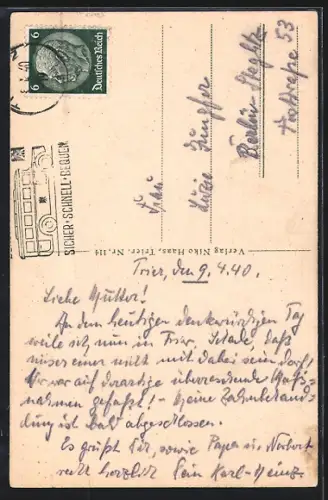 6 Deutsches Reich 6
SICHER · SCHNELL · BEQUEM
Frau
Luzie Jungfer
Berlin-Steglitz
53
Verlag Niko Haas, Trier. Nr. 114
Trier, den 9.4.40.
Liebe Mutter!
An dem heutigen denkwürdigen Tag
weile ich nun in Trier. Schade, daß
unsereiner nicht mit dabei sein darf!
Wer war auf derartige überraschende Maß-
nahmen gefaßt! – Meine Zahnbehand-
lung ist bald abgeschlossen.
Es grüßt Dir, sowie Papa u. Norbert
recht herzlich Dein Karl-Heinz.